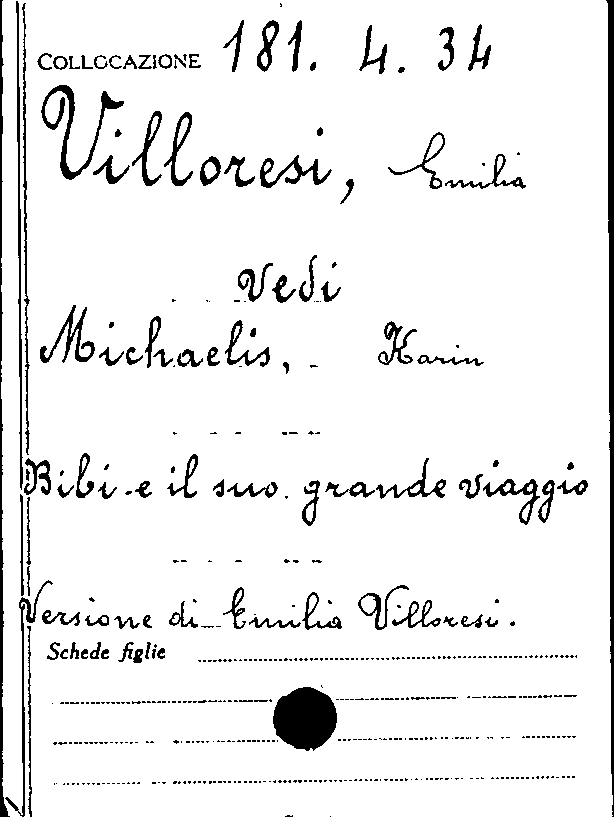 COLLOCAZIONE 181. 4. 34
Villoresi, Emilia
vedi
Michaelis, Karin
Bibi e il suo grande viaggio
Versione di Emilia Villoresi.
Schede figlie